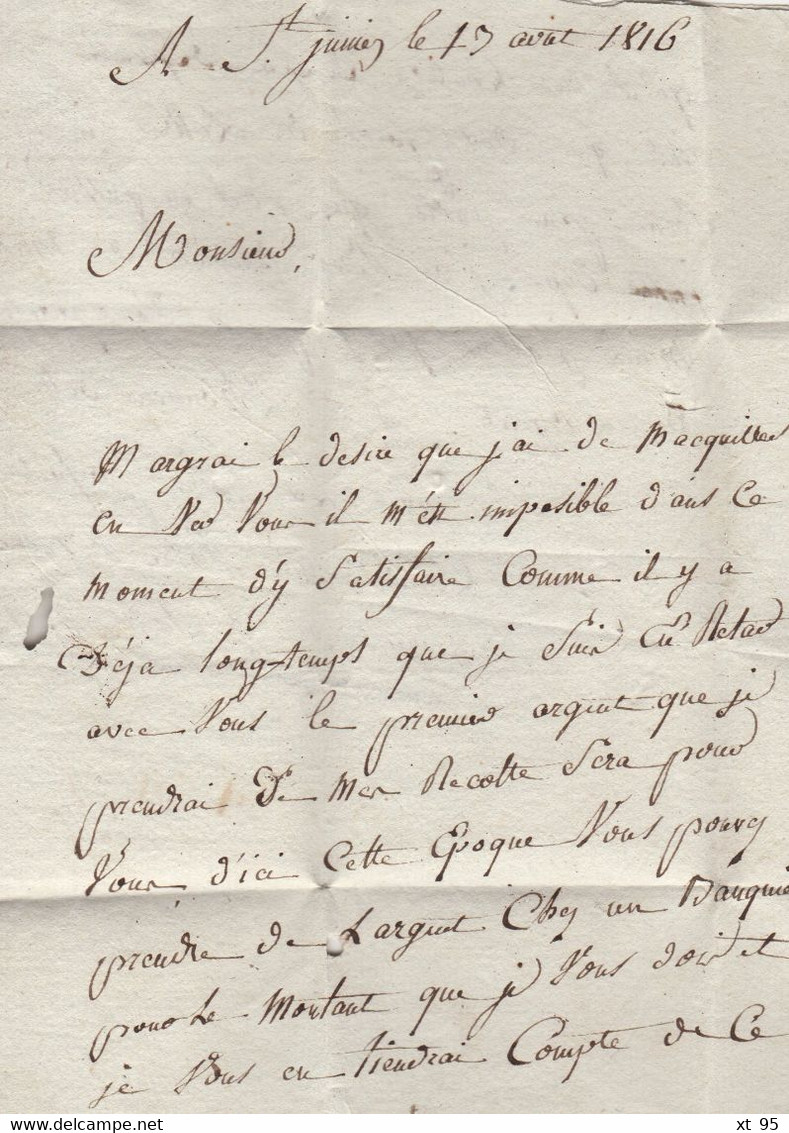 A St junien le 13 avril 1816
Monsieur,
Margrai le desire que j'ai de Macquitter
en Ver Vous il m'est imposible d'ans Ce
moment d'y Satisfaire Comme il y a
Déja long-temps que je Suis En Retard
avec Vous le premier argent que je
prendrai De Mes Recolte Sera pour
Vous, d'ici Cette Epoque Vous pouvez
prendre de Largent Chez un Banquier
pour Le Montant que je Vous dois et
je Vous en tiendrai Compte de Ce
xt 95